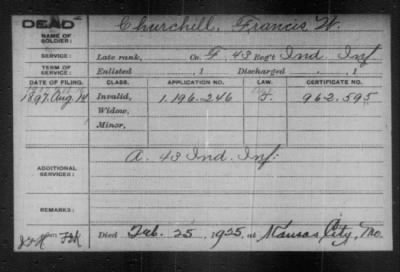 DEAD
NAME OF SOLDIER: Churchill, Francis W.
SERVICE: Late rank, Co. F, 43 Reg't Ind. Inf.
TERM OF SERVICE: Enlisted , 1 Discharged , 1
DATE OF FILING. CLASS. APPLICATION NO. LAW. CERTIFICATE NO.
1897. Aug. 14 Invalid, 1.196.246 962.595
Widow,
Minor,
ADDITIONAL SERVICES: A. 43 Ind. Inf:
Died Feb. 25, 1925, at Kansas City, Mo.